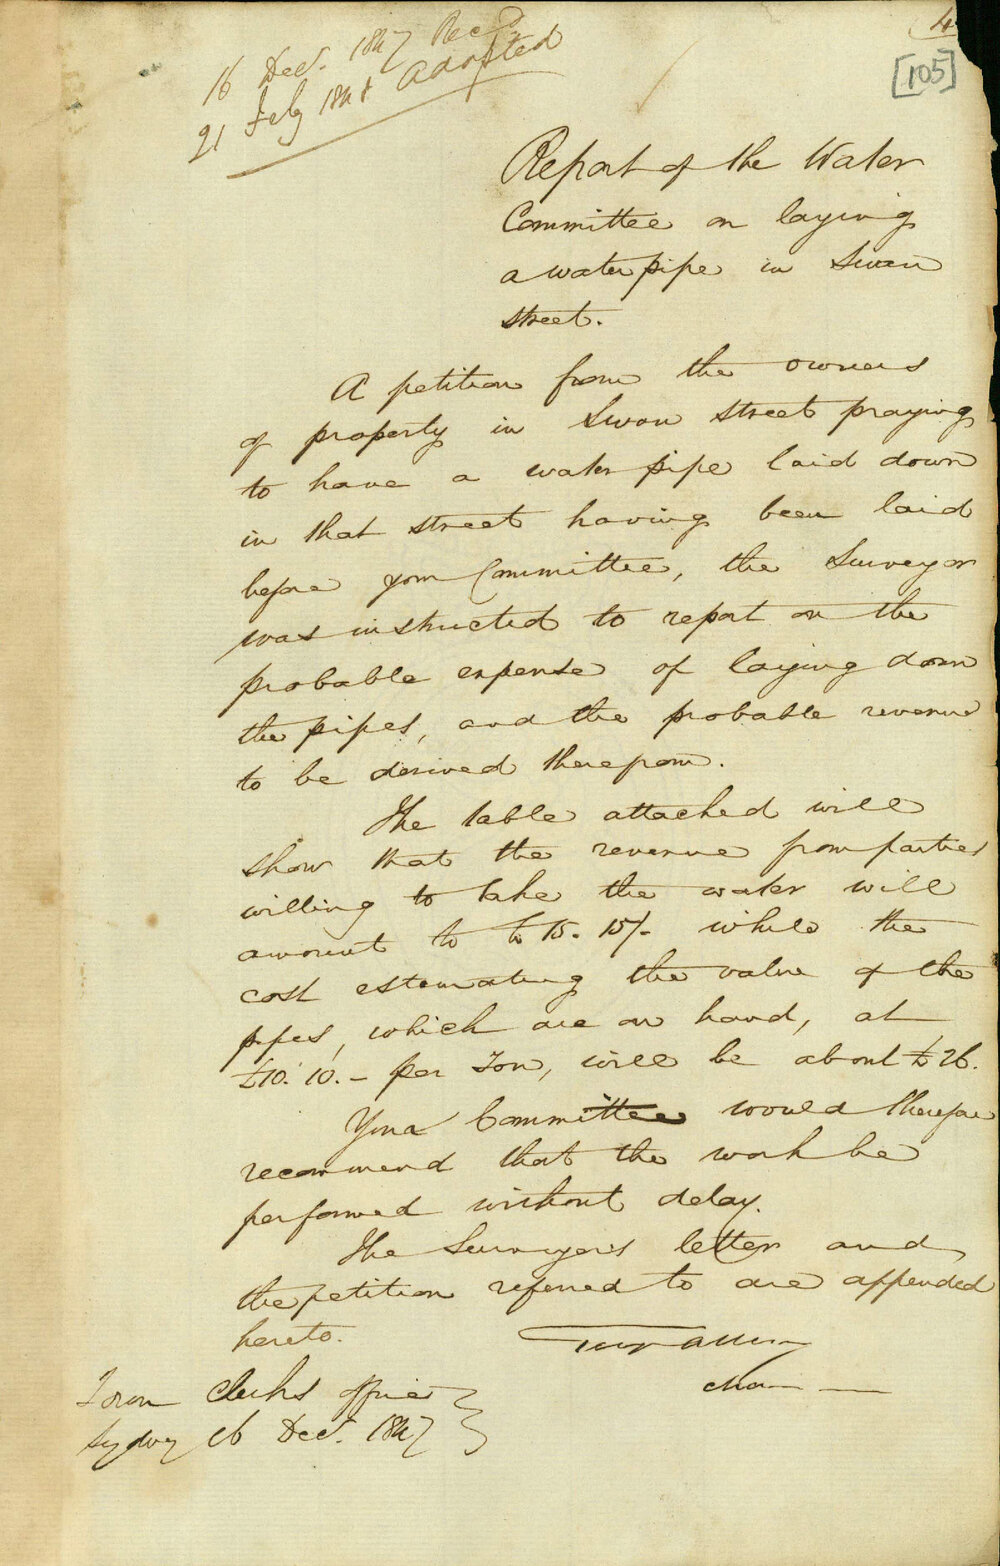 4
[105]
16 Decr. 1847 Recd.
21 Feby 1848 Adopted
Report of the Water
Committee on laying
a water pipe in Swan
street.
A petition from the owners
of property in Swan street praying
to have a water pipe laid down
in that street having been laid
before your Committee, the Surveyor
was instructed to report on the
probable expense of laying down
the pipes, and the probable revenue
to be derived therefrom.
The table attached will
show that the revenue from parties
willing to take the water will
amount to £15. 15/- while the
cost estemating the value of the
pipes, which are on hand, at
£10. 10. - per Ton, will be about £26.
Your Committee would therefore
recommend that the work be
performed without delay.
The Surveyor's letter and
the petition referred to are appended
hereto.
Allen
Chan
Town Clerks office
Sydney 16 Decr. 1847